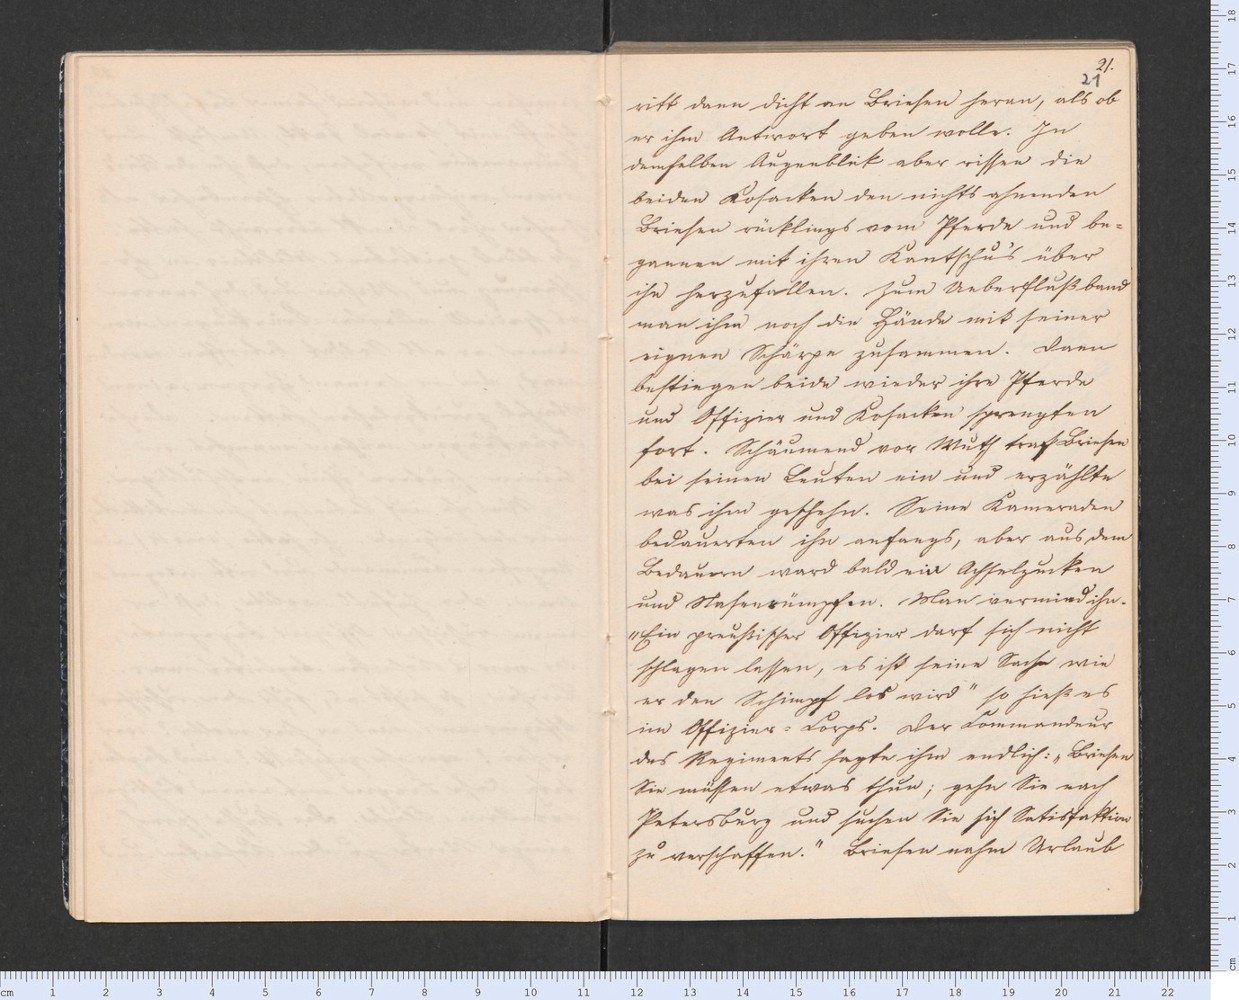 21.
21
ritt dann dicht an Briesen heran, als ob
er ihm Antwort geben wolle. In
demselben Augenblick aber rissen die
beiden Kosacken den nichts ahnenden
Briesen rücklings vom Pferde und be=
gannen mit ihren Kantschu's über
ihn herzufallen. Zum Ueberfluß band
man ihm noch die Hände mit seiner
eignen Schärpe zusammen. Dann
bestiegen beide wieder ihre Pferde
und Offizier und Kosacken sprengten
fort. Schäumend vor Wuth traf Briesen
bei seinen Leuten ein und erzählte
was ihm geschehn. Seine Kameraden
bedauerten ihn anfangs, aber aus dem
Bedauern ward bald ein Achselzucken
und Nasenrümpfen. Man vermied ihn.
"Ein preußischer Offizier darf sich nicht
schlagen lassen, es ist seine Sache wie
er den Schimpf los wird" so hieß es
im Offizier=Corps. Der Commandeur
des Regiments sagte ihm endlich: „Briesen
Sie müssen etwas thun; gehn Sie nach
Petersburg und suchen Sie sich Satisfaktion
zu verschaffen." Briesen nahm Urlaub
cm 1 2 3 4 5 6 7 8 9 10 11 12 13 14 15 16 17 18 19 20 21 22
18
17
16
15
14
13
12
11
10
9
8
7
6
5
4
3
2
1
cm